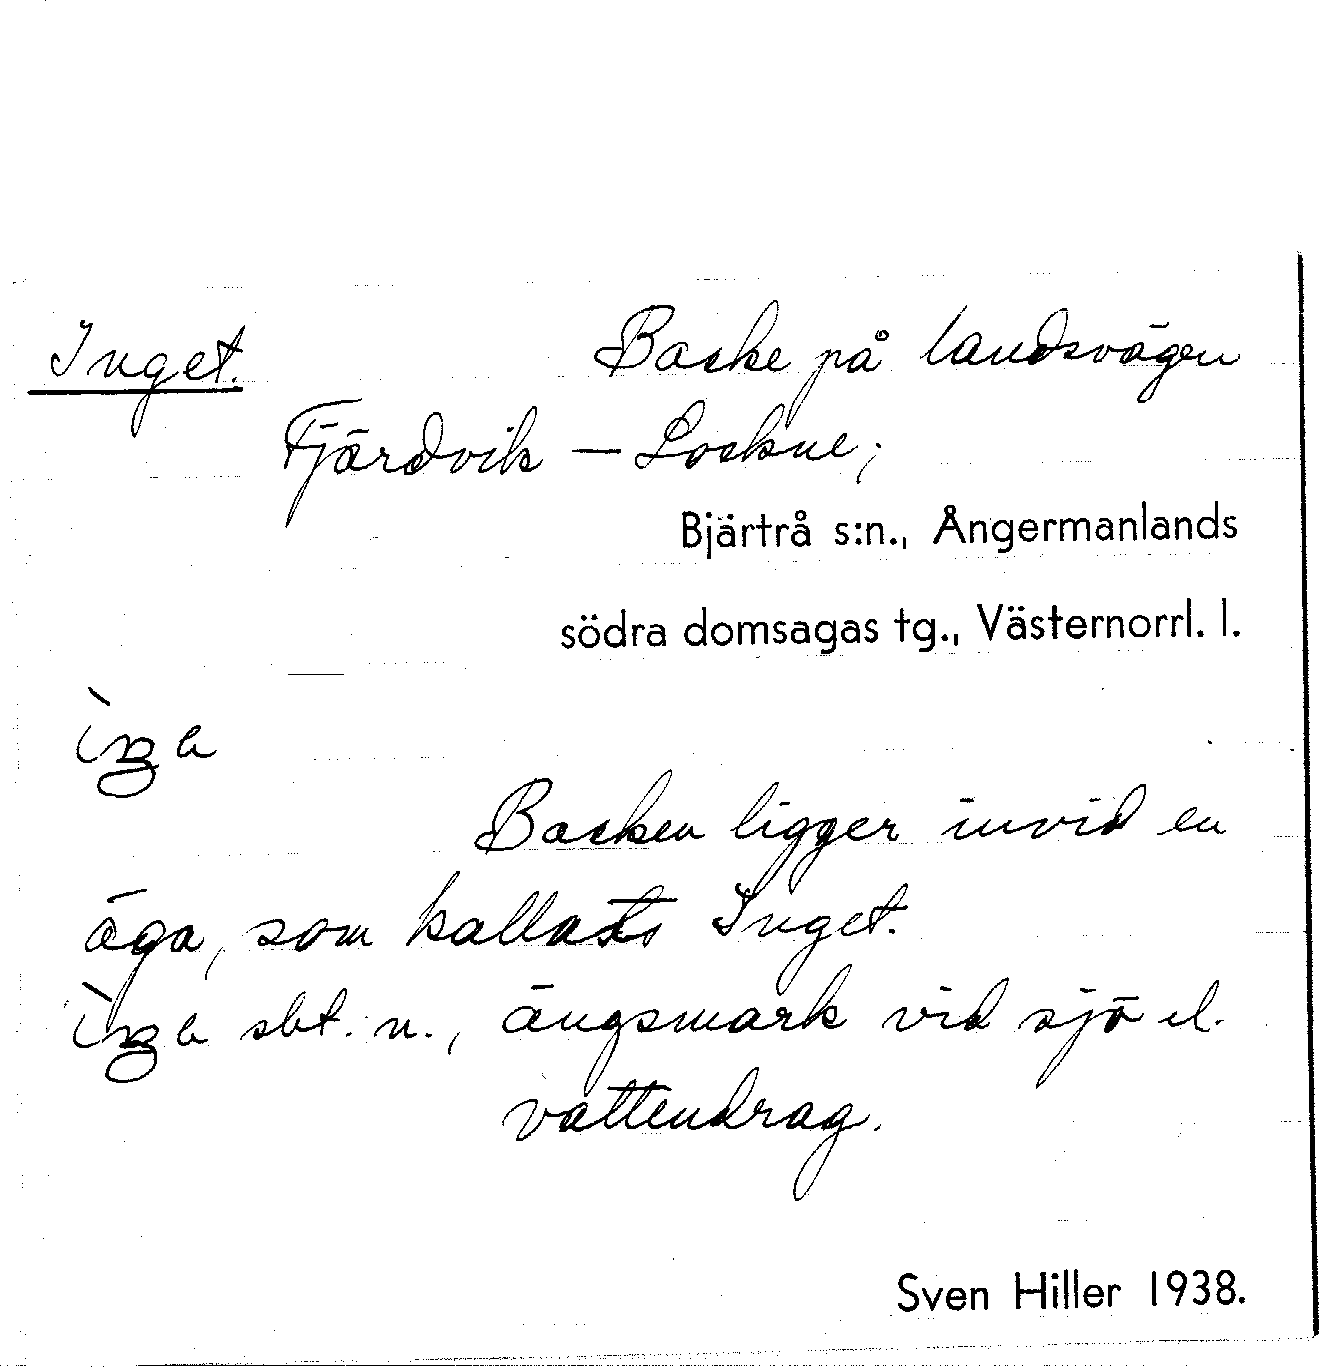 Inget. Backe på landsvägen
Fjärdvik – Lockne;
Bjärtrå s:n., Ångermanlands
södra domsagas tg., Västernorrl. l.
Backen ligger invid en
äga, som kallats Inget.
sbt. n., ängsmark vid sjö el.
vattendrag.
Sven Hiller 1938.